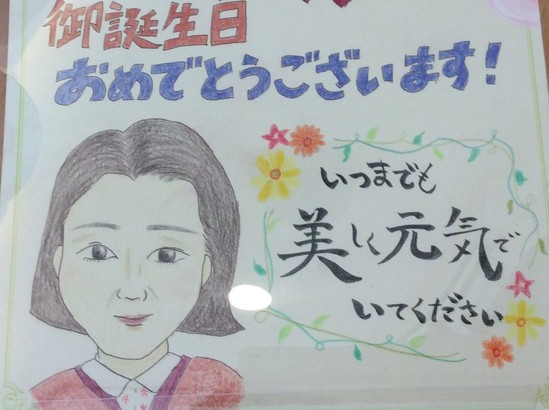 御誕生日
おめでとうございます!
いつまでも
美しく元気で
いてください